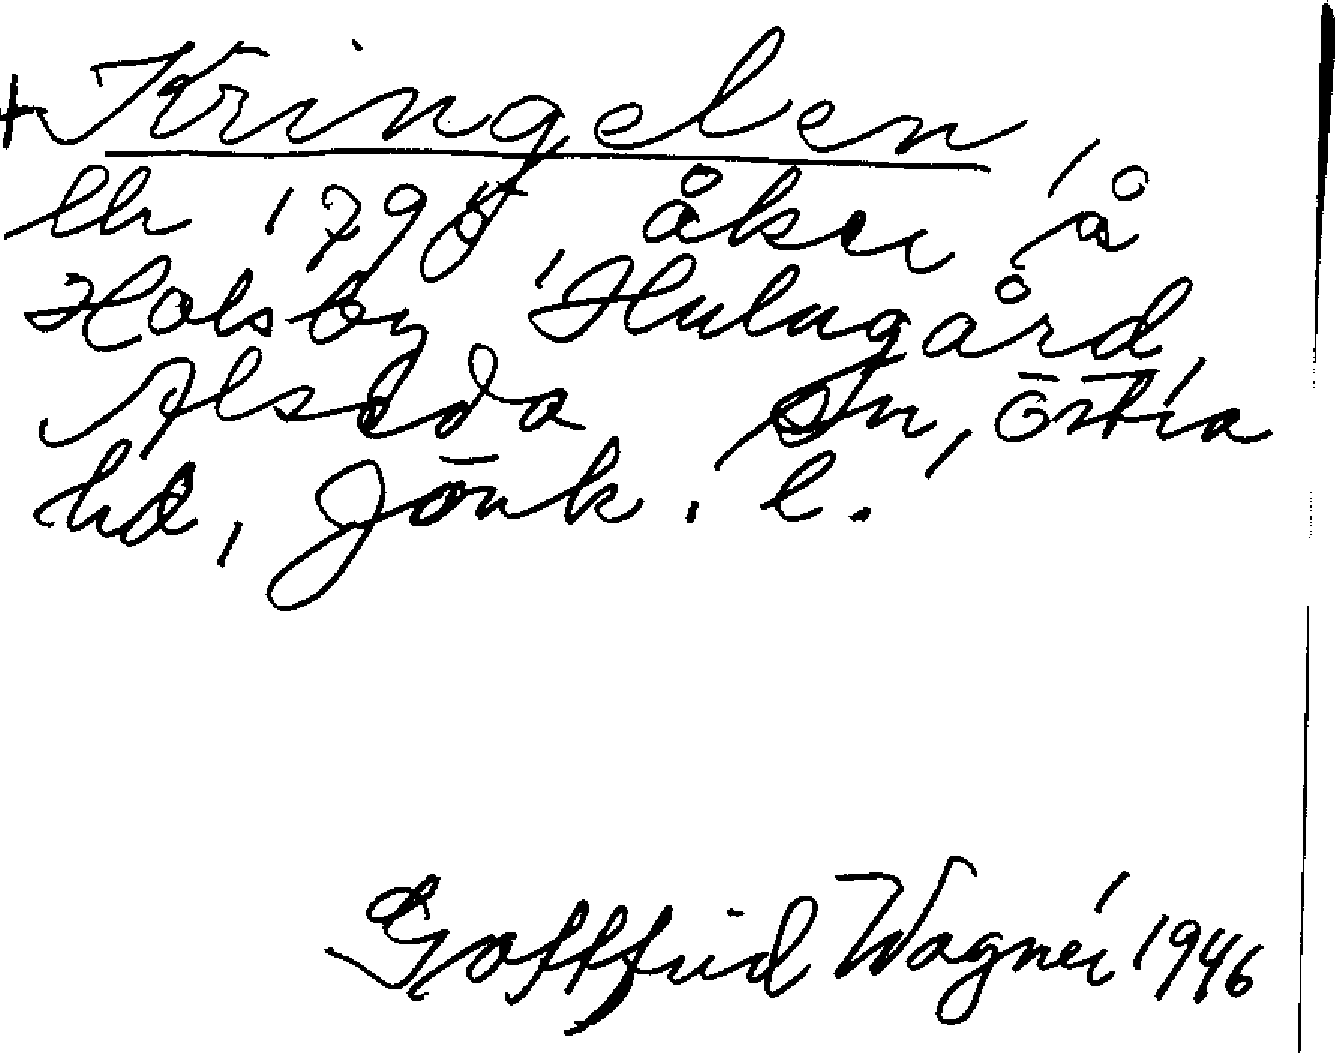 + Kringelen,
llr 1795, åker å
Holsby Hulugård,
Alseda sn, östra
hd, Jönk. l.
Gottfrid Wagnér 1946